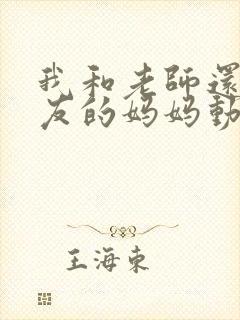 我和老師還
友的妈妈動
王海東